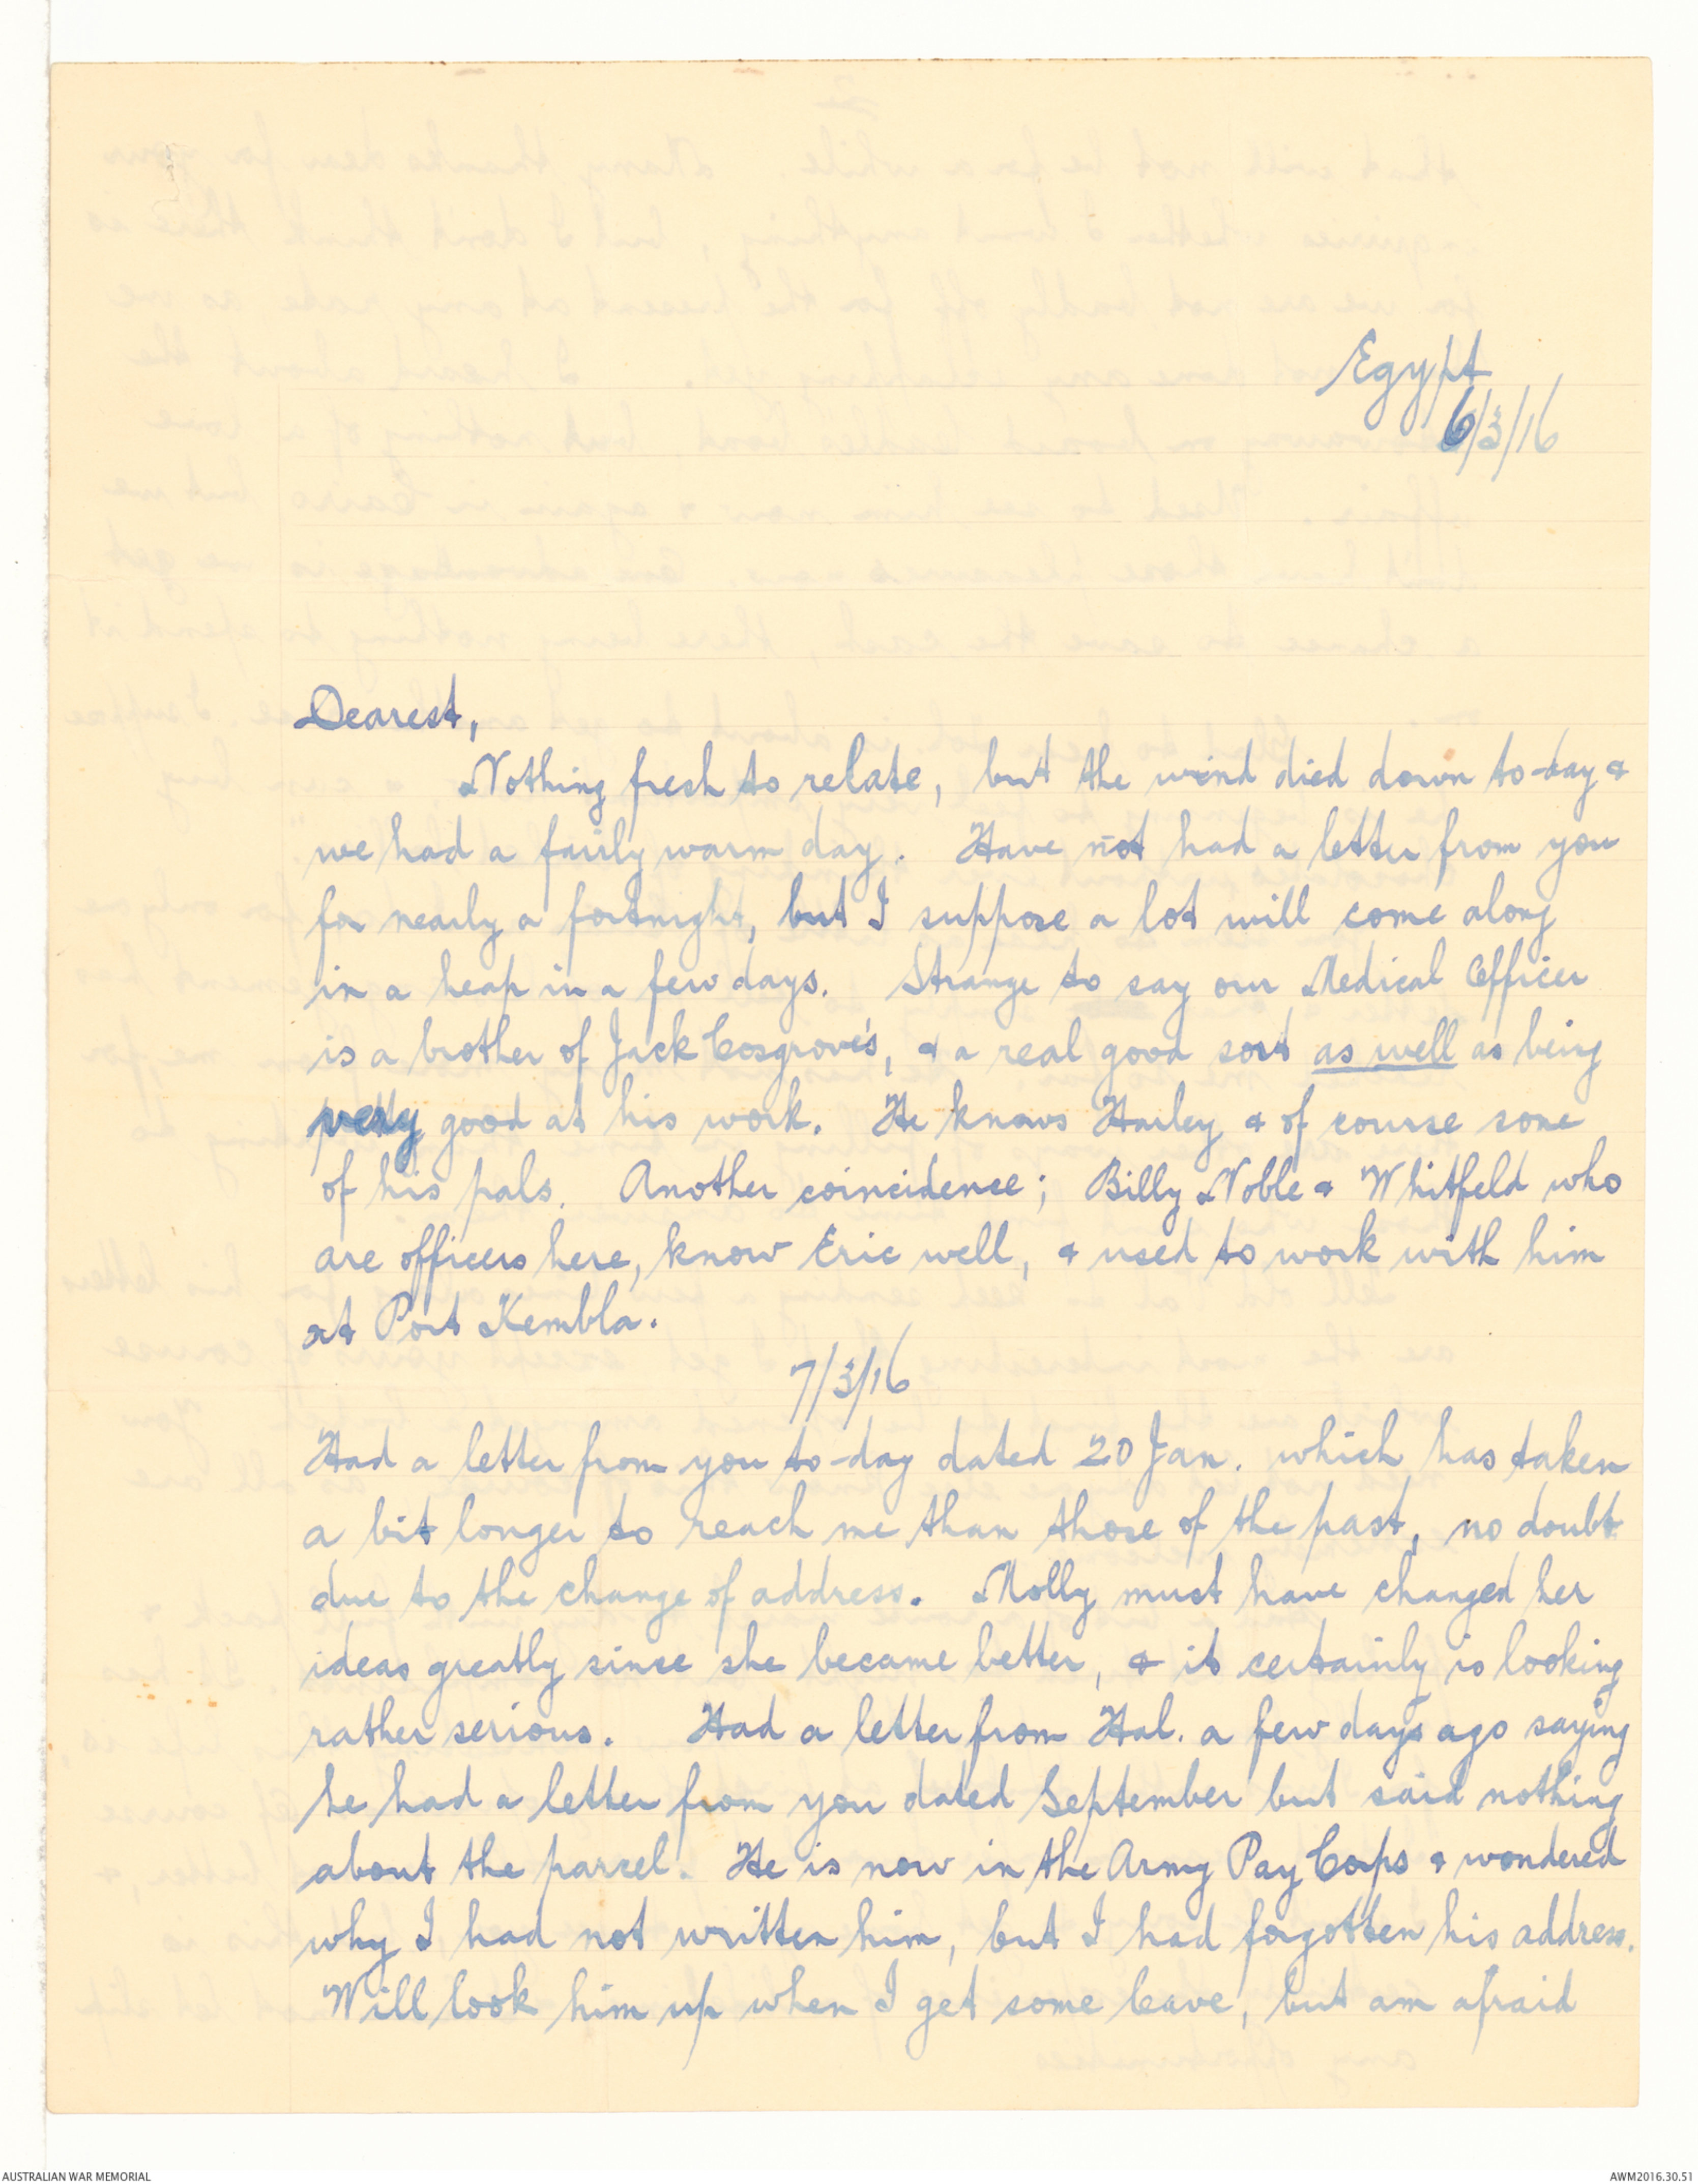 Egypt
6/3/16
Dearest,
Nothing fresh to relate, but the wind died down to-day &
we had a fairly warm day. Have not had a letter from you
for nearly a fortnight, but I suppose a lot will come along
in a heap in a few days. Strange to say our Medical Officer
is a brother of Jack Cosgrove's, & a real good sort as well as being
good at his work. He knows Harley & of course some
of his pals. Another coincidence; Billy Noble & Whitfeld who
are officers here, know Eric well, & used to work with him
at Port Kembla.
7/3/16
Had a letter from you to-day dated 20 Jan. which has taken
a bit longer to reach me than those of the past, no doubt
due to the change of address. Molly must have changed her
ideas greatly since she became better, & it certainly is looking
rather serious. Had a letter from Hal. a few days ago saying
he had a letter from you dated September but said nothing
about the parcel. He is now in the Army Pay Corps & wondered
why I had not written him, but I had forgotten his address.
Will look him up when I get some leave, but am afraid
AUSTRALIAN WAR MEMORIAL
AWM2016.30.51